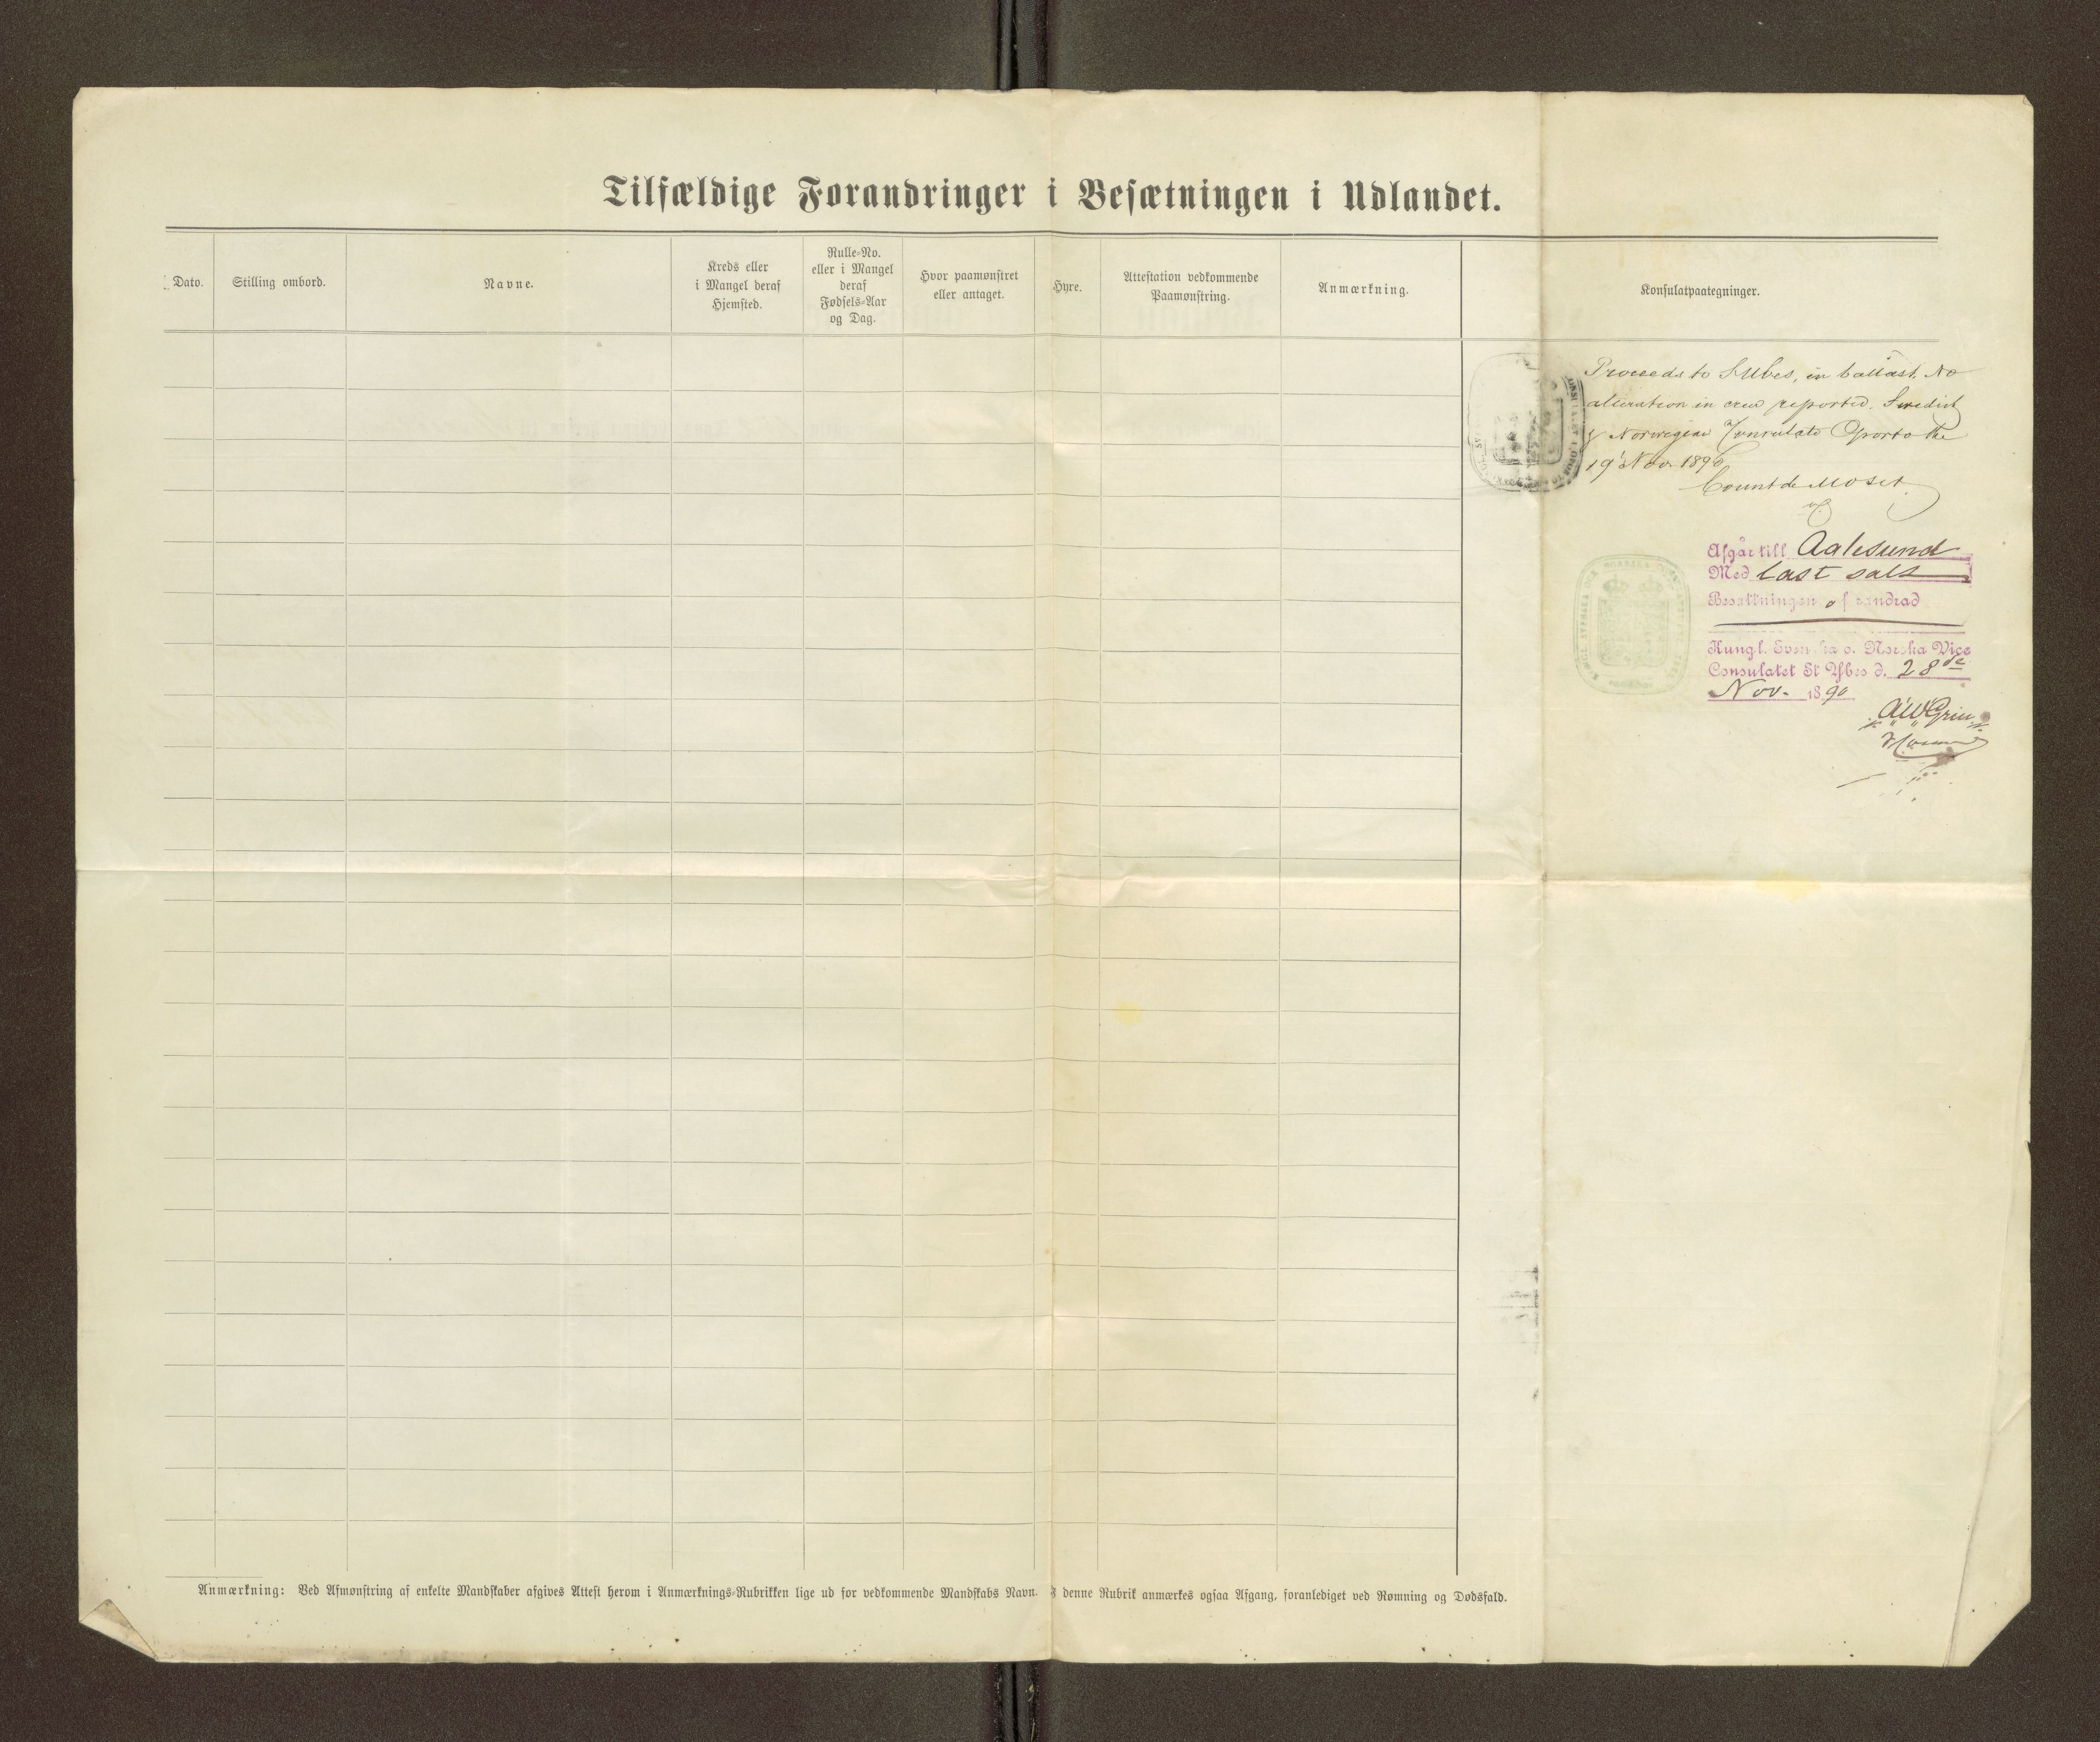 Tilfældige Forandringer i Besætningen i Udlandet.
Dato.
Stilling ombord.
Navne.
Kreds eller
i Mangel deraf
Hjemsted.
Rulle-No.
eller i Mangel
deraf
Fødsels-Aar
og Dag.
Hvor paamønstret
eller antaget.
Hyre.
Attestation vedkommende
Paamønstring.
Anmærkning.
Konsulatpaategninger.
Proceeds to St Ubes, in ballast. No
alteration in crew reported. Swedish
& Norwegian Consulate Oporto the
19 Nov 1890
Count de
Afgår till Aalesund
Med last salt
Besättningen oförändrad
Kungl. Svenska o. Norska Vice
Consulatet St Ybes d. 28de
Nov. 1890
Anmærkning: Ved Afmønstring af enkelte Mandskaber afgives Attest herom i Anmærknings-Rubrikken lige ud for vedkommende Mandskabs Navn. I denne Rubrik anmærkes ogsaa Afgang, foranlediget ved Rømning og Dødsfald.